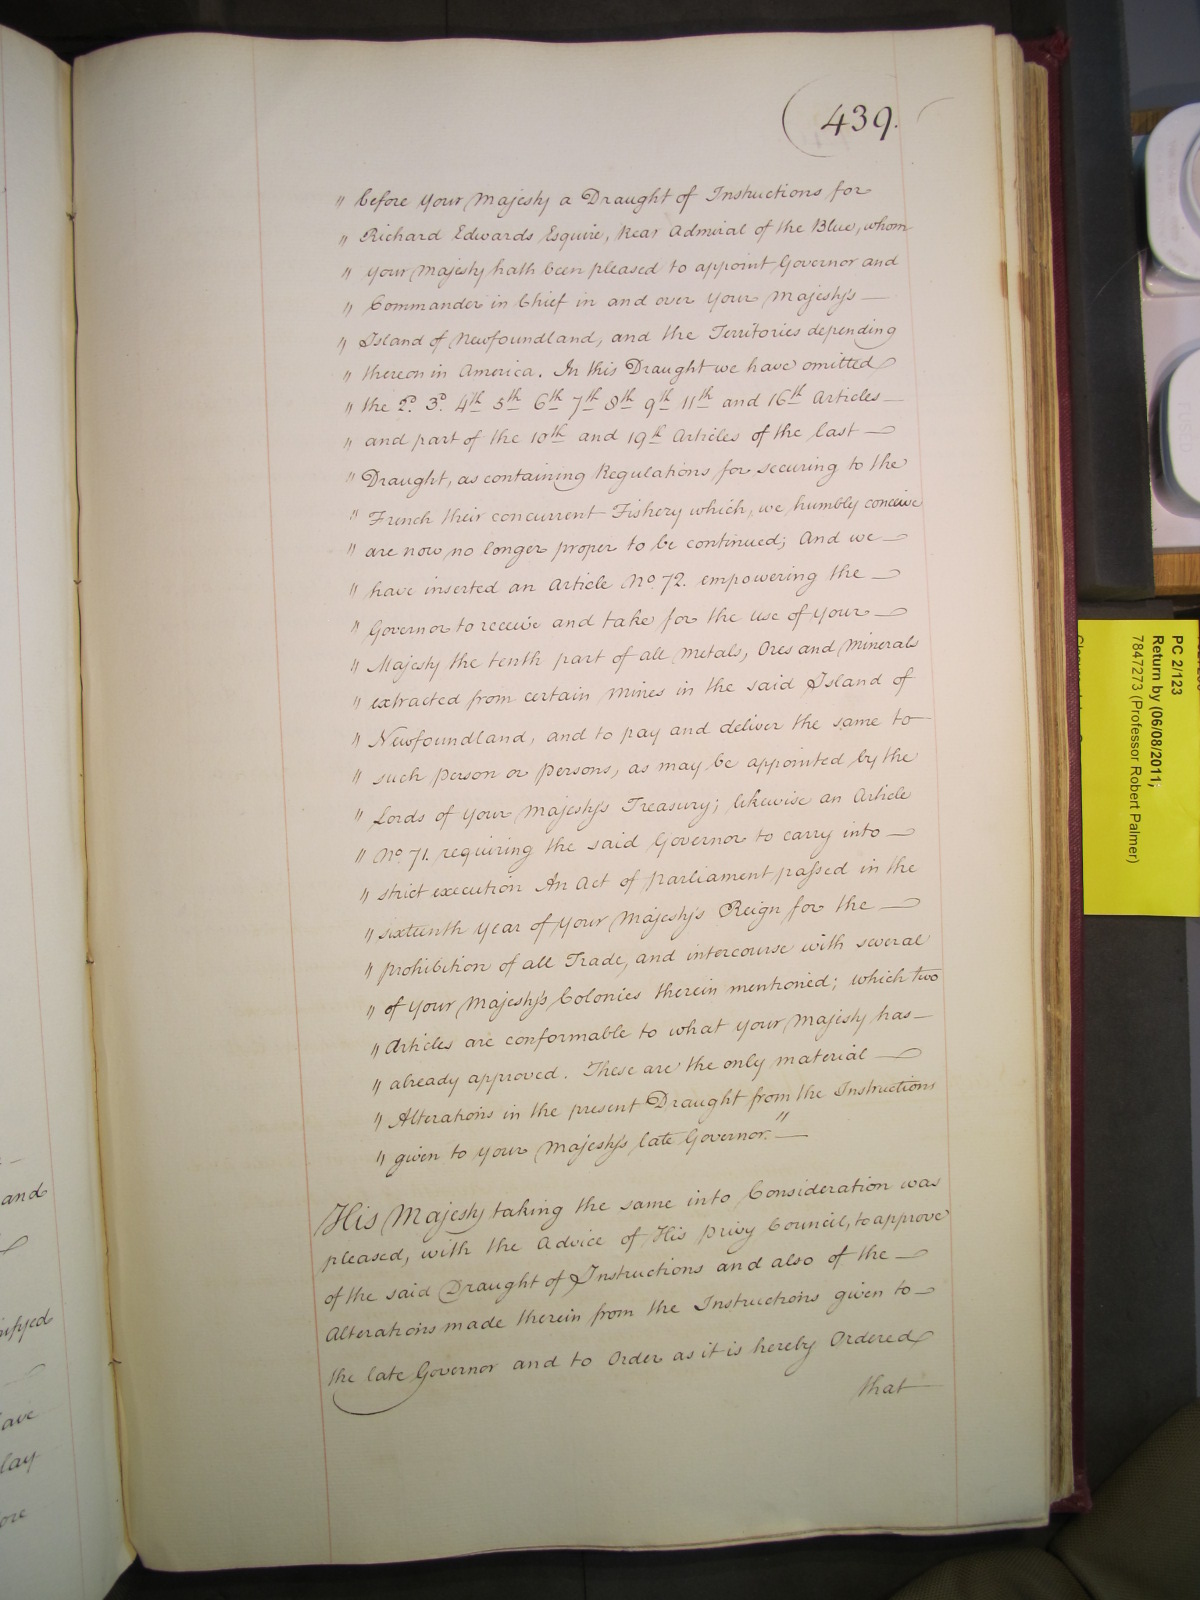 439.
" before Your Majesty a Draught of Instructions for
" Richard Edwards Esquire, Rear Admiral of the Blue, whom
" Your Majesty hath been pleased to appoint Governor and
" Commander in Chief in and over Your Majesty's —
" Island of Newfoundland, and the Territories depending
" thereon in America. In this Draught we have omitted
" the 2d. 3d. 4th 5th 6th 7th 8th 9th 11th and 16th Articles —
" and part of the 10th and 19th Articles of the last —
" Draught, as containing Regulations for securing to the
" French their concurrent Fishery which, we humbly conceive
" are now no longer proper to be continued; And we —
" have inserted an Article No. 72. empowering the —
" Governor to receive and take for the use of Your —
" Majesty the tenth part of all Metals, Ores and Minerals
" extracted from certain Mines in the said Island of
" Newfoundland, and to pay and deliver the same to
" such Person or Persons, as may be appointed by the
" Lords of Your Majesty's Treasury; likewise an Article
" No. 71. requiring the said Governor to carry into —
" strict execution An Act of Parliament passed in the
" sixteenth Year of Your Majesty's Reign for the —
" prohibition of all Trade, and intercourse with several
" of Your Majesty's Colonies therein mentioned; which two
" Articles are conformable to what Your Majesty has —
" already approved. These are the only material —
" Alterations in the present Draught from the Instructions
" given to Your Majesty's late Governor." —
His Majesty taking the same into Consideration was
pleased, with the Advice of His Privy Council, to approve
of the said Draught of Instructions and also of the —
Alterations made therein from the Instructions given to —
the late Governor and to Order as it is hereby Ordered
that
and
have
lay
PC 2/123
Return by (06/08/2011;
7847273 (Professor Robert Palmer)